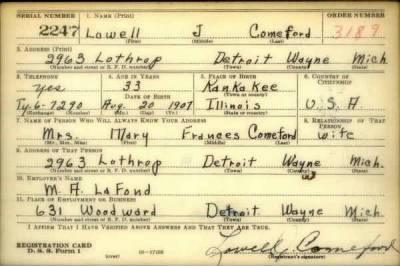 SERIAL NUMBER 1. NAME (Print) ORDER NUMBER
2247 Lowell J Comeford 3189
(First) (Middle) (Last)
2. ADDRESS (Print)
2963 Lothrop Detroit Wayne Mich
(Number and street or R. F. D. number) (Town) (County) (State)
3. TELEPHONE 4. AGE IN YEARS 5. PLACE OF BIRTH 6. COUNTRY OF CITIZENSHIP
yes 33 Kankakee
(Town or county)
Ty-6-7290 Aug. 20 1907 Illinois U.S.A.
(Exchange) (Number) (Mo.) (Day) (Yr.) (State or country)
7. NAME OF PERSON WHO WILL ALWAYS KNOW YOUR ADDRESS 8. RELATIONSHIP OF THAT PERSON
Mrs. Mary Frances Comeford wife
(Mr., Mrs., Miss) (First) (Middle) (Last)
9. ADDRESS OF THAT PERSON
2963 Lothrop Detroit Wayne Mich.
(Number and street or R. F. D. number) (Town) (County) (State)
10. EMPLOYER'S NAME
M. A. LaFond
11. PLACE OF EMPLOYMENT OR BUSINESS
631 Woodward Detroit Wayne Mich.
(Number and street or R. F. D. number) (Town) (County) (State)
I AFFIRM THAT I HAVE VERIFIED ABOVE ANSWERS AND THAT THEY ARE TRUE.
REGISTRATION CARD
D. S. S. Form 1 (over) Lowell Comeford
(Registrant's signature)